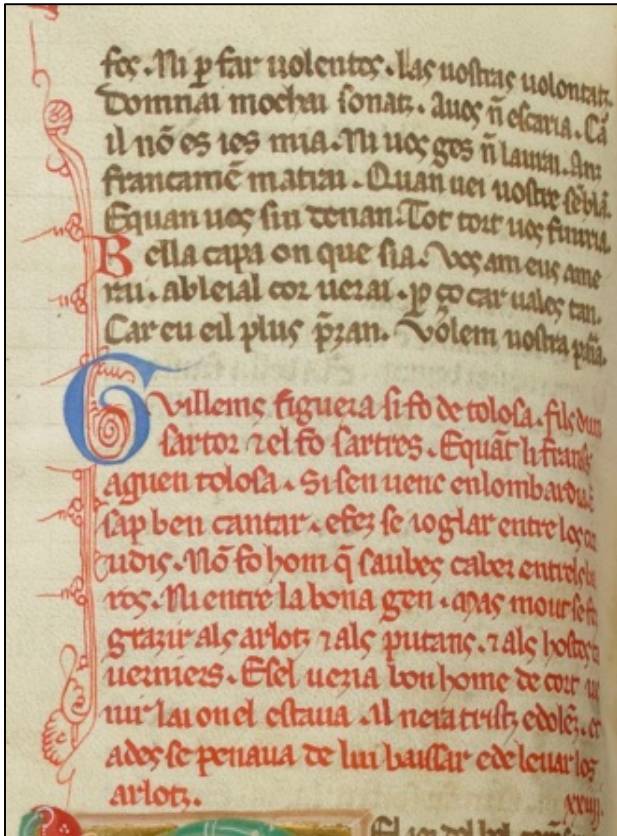 fos. Ni ꝑ far uolentos. Las uostras uolontatz.
Domnai mochai sonatz. Auos ñ escaria. Cā
il nō es ies mia. Ni uos ges ñ laurai. Am
francamē̄ matrai. Quan uei uostre sēblā.
E quan uos sin denan. Tot tort uos
Bella capa on que sia. Vos am eus ame
rai. ab leial cor uerai. ꝑ ço car uales tan.
Car eu eil plus p̄zan. Volem uostra
Guillems figuera si fo de tolosa. fils dun
sartor ⁊ el fo sartres. E quāt li frances
aguen tolosa. Si sen uenc en lombardia. ē
sap ben cantar. e fez se ioglar entre los ciu
tadis. Nō fo hom q̄ saubes caber entrels ba
ros. Ni entre la bona gen. Mas mout se fez
grazir als arlotz ⁊ als putans. ⁊ als hostes ta
uerniers. E sel uezia bon home de cort ue
nir lai on el estaua. Il nera tristz e dolēz. et
ades se penaua de lui baissar e de leuar los
arlotz. xxiij.